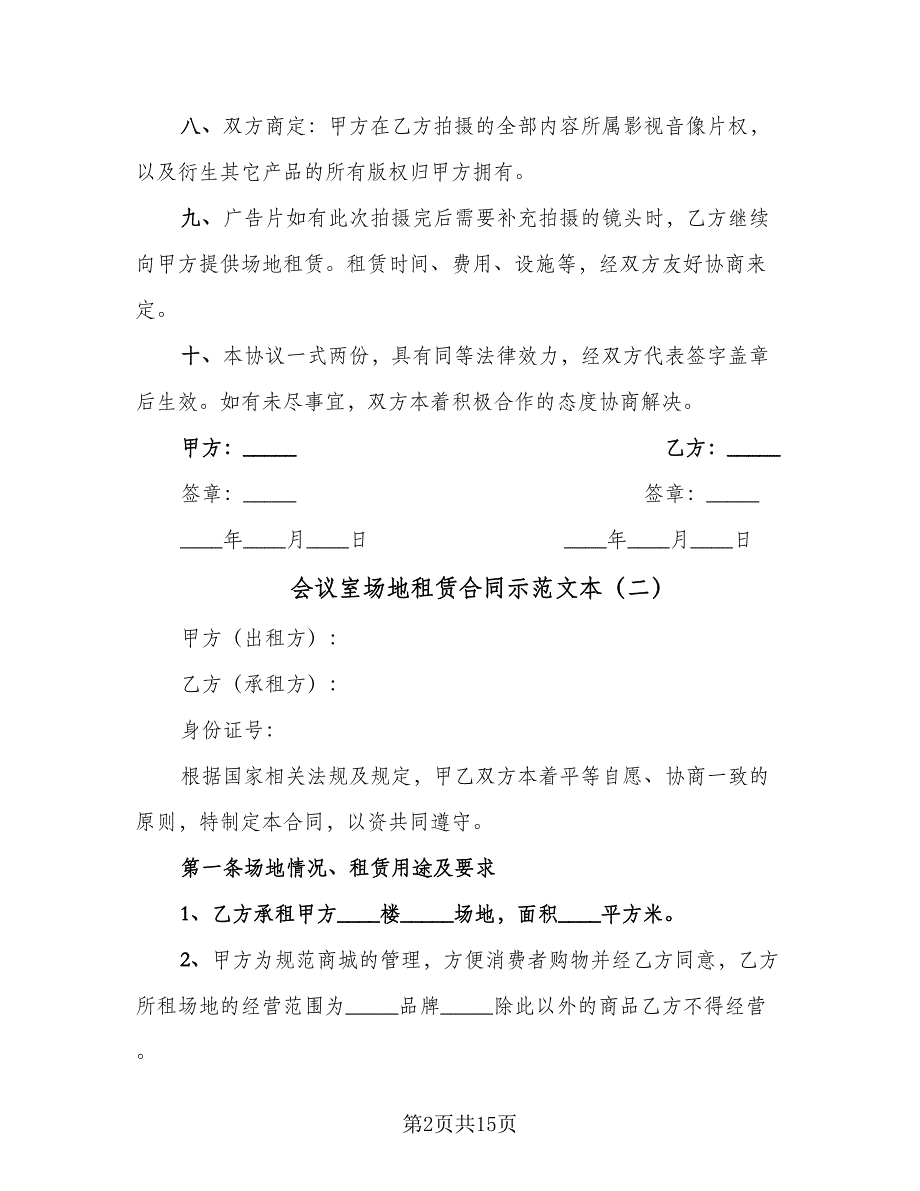 八、双方商定：甲方在乙方拍摄的全部内容所属影视音像片权，
以及衍生其它产品的所有版权归甲方拥有。
九、广告片如有此次拍摄完后需要补充拍摄的镜头时，乙方继续
向甲方提供场地租赁。租赁时间、费用、设施等，经双方友好协商来
定。
十、本协议一式两份，具有同等法律效力，经双方代表签字盖章
后生效。如有未尽事宜，双方本着积极合作的态度协商解决。
甲方：_____ 乙方：_____
签章：_____ 签章：_____
____年____月____日 ____年____月____日
会议室场地租赁合同示范文本（二）
甲方（出租方）：
乙方（承租方）：
身份证号：
根据国家相关法规及规定，甲乙双方本着平等自愿、协商一致的
原则，特制定本合同，以资共同遵守。
第一条场地情况、租赁用途及要求
1、乙方承租甲方____楼_____场地，面积____平方米。
2、甲方为规范商城的管理，方便消费者购物并经乙方同意，乙方
所租场地的经营范围为_____品牌_____除此以外的商品乙方不得经营
。
第2页共15页